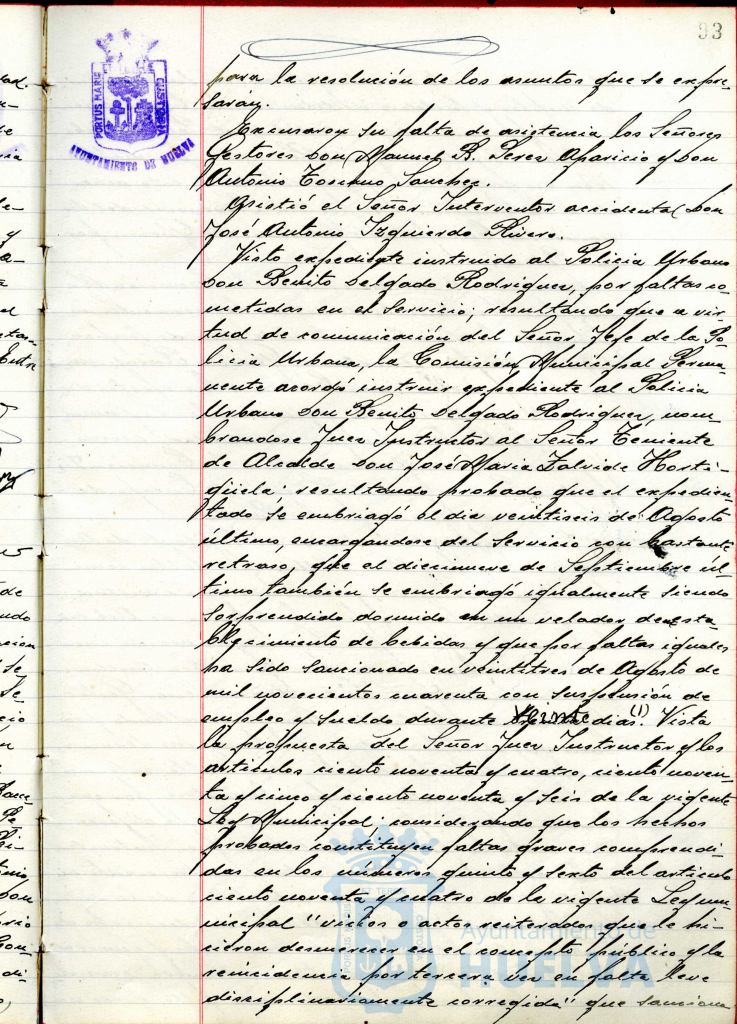 93
PORTUS MARIS CUSTODIA
AYUNTAMIENTO DE HUELVA
para la resolución de los asuntos que se expre-
sarán.
Excusaron su falta de asistencia los Señores
Gestores Don Manuel B. Perez Aparicio y Don
Antonio Toscano Sanchez.
Asistió el Señor Interventor accidental Don
José Antonio Izquierdo Rivero.
Visto expediente instruido al Policia Urbano
Don Benito Delgado Rodriguez, por faltas co-
metidas en el servicio; resultando que a vir-
tud de comunicación del Señor Jefe de la Po-
licia Urbana, la Comisión Municipal Perma-
nente acordó instruir expediente al Policia
Urbano Don Benito Delgado Rodriguez, nom-
brandose Juez Instructor al Señor Teniente
de Alcalde Don José Maria Zalvide Horti-
güela; resultando probado que el expedien-
tado se embriagó el dia veintiseis de Agosto
último, encargandose del servicio con bastante
retraso, que el diecinueve de Septiembre úl-
timo también se embriagó igualmente siendo
sorprendido dormido en un velador de esta-
blecimiento de bebidas y que por faltas iguales
ha sido sancionado en veintitres de Agosto de
mil novecientos cuarenta con suspensión de
empleo y sueldo durante veinte dias (1). Vista
la propuesta del Señor Juez Instructor y los
articulos ciento noventa y cuatro, ciento noven-
ta y cinco y ciento noventa y seis de la vigente
Ley Municipal; considerando que los hechos
probados constituyen faltas graves comprendi-
das en los números quinto y sexto del articulo
ciento noventa y cuatro de la vigente Ley mu-
nicipal "vicios o actos reiterados que le hi-
cieron desmerecer en el concepto público y la
reincidencia por tercera vez en falta leve
disciplinariamente corregida" que sanciona
Ayuntamiento de
HUELVA